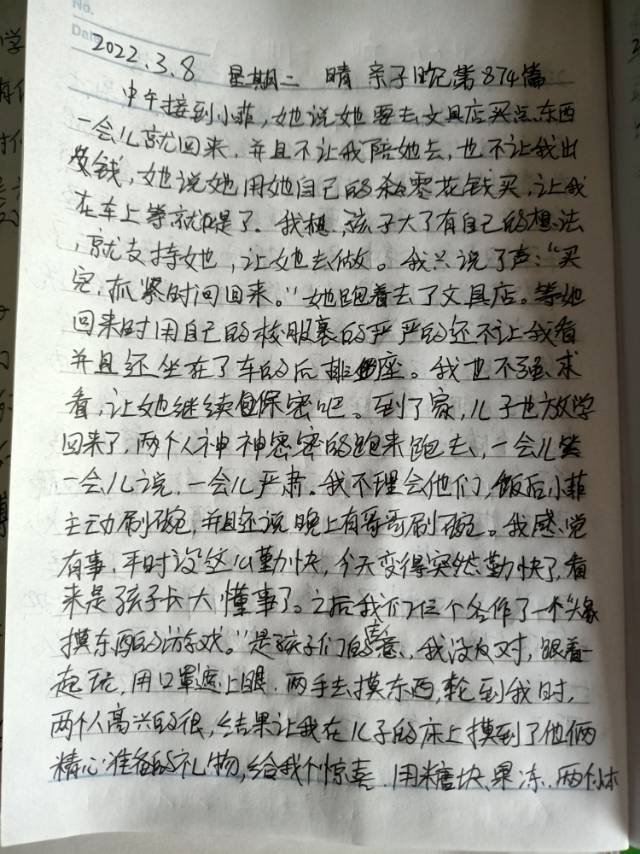 No.
Dat
2022.3.8 星期二 晴 亲子日记第874篇
中午接到小菲,她说她要去文具店买点东西
一会儿就回来,并且不让我陪她去,也不让我出
钱,她说她用她自己的零花钱买,让我
在车上等就是了。我想,孩子大了有自己的想法
,就支持她,让她去做。我只说了声:“买
完,抓紧时间回来。”她跑着去了文具店。等她
回来时用自己的校服裹的严严的还不让我看
并且还坐在了车的后排座。我也不强求
看,让她继续保密吧。到了家,儿子也放学
回来了,两个人神神密密的跑来跑去,一会儿笑
一会儿说,一会儿严肃。我不理会他们,饭后小菲
主动刷碗,并且还说晚上有哥哥刷碗。我感觉
有事,平时没这么勤快,今天变得突然勤快了,看
来是孩子长大懂事了。之后我们仨个合作了一个“蒙
摸东西的游戏。”是孩子们的意,我没反对,跟着一
起玩,用口罩遮上眼,两手去摸东西,轮到我时,
两个人高兴的很,结果让我在儿子的床上摸到了他俩
精心准备的礼物,给我个惊喜,用糖块、果冻、两个本